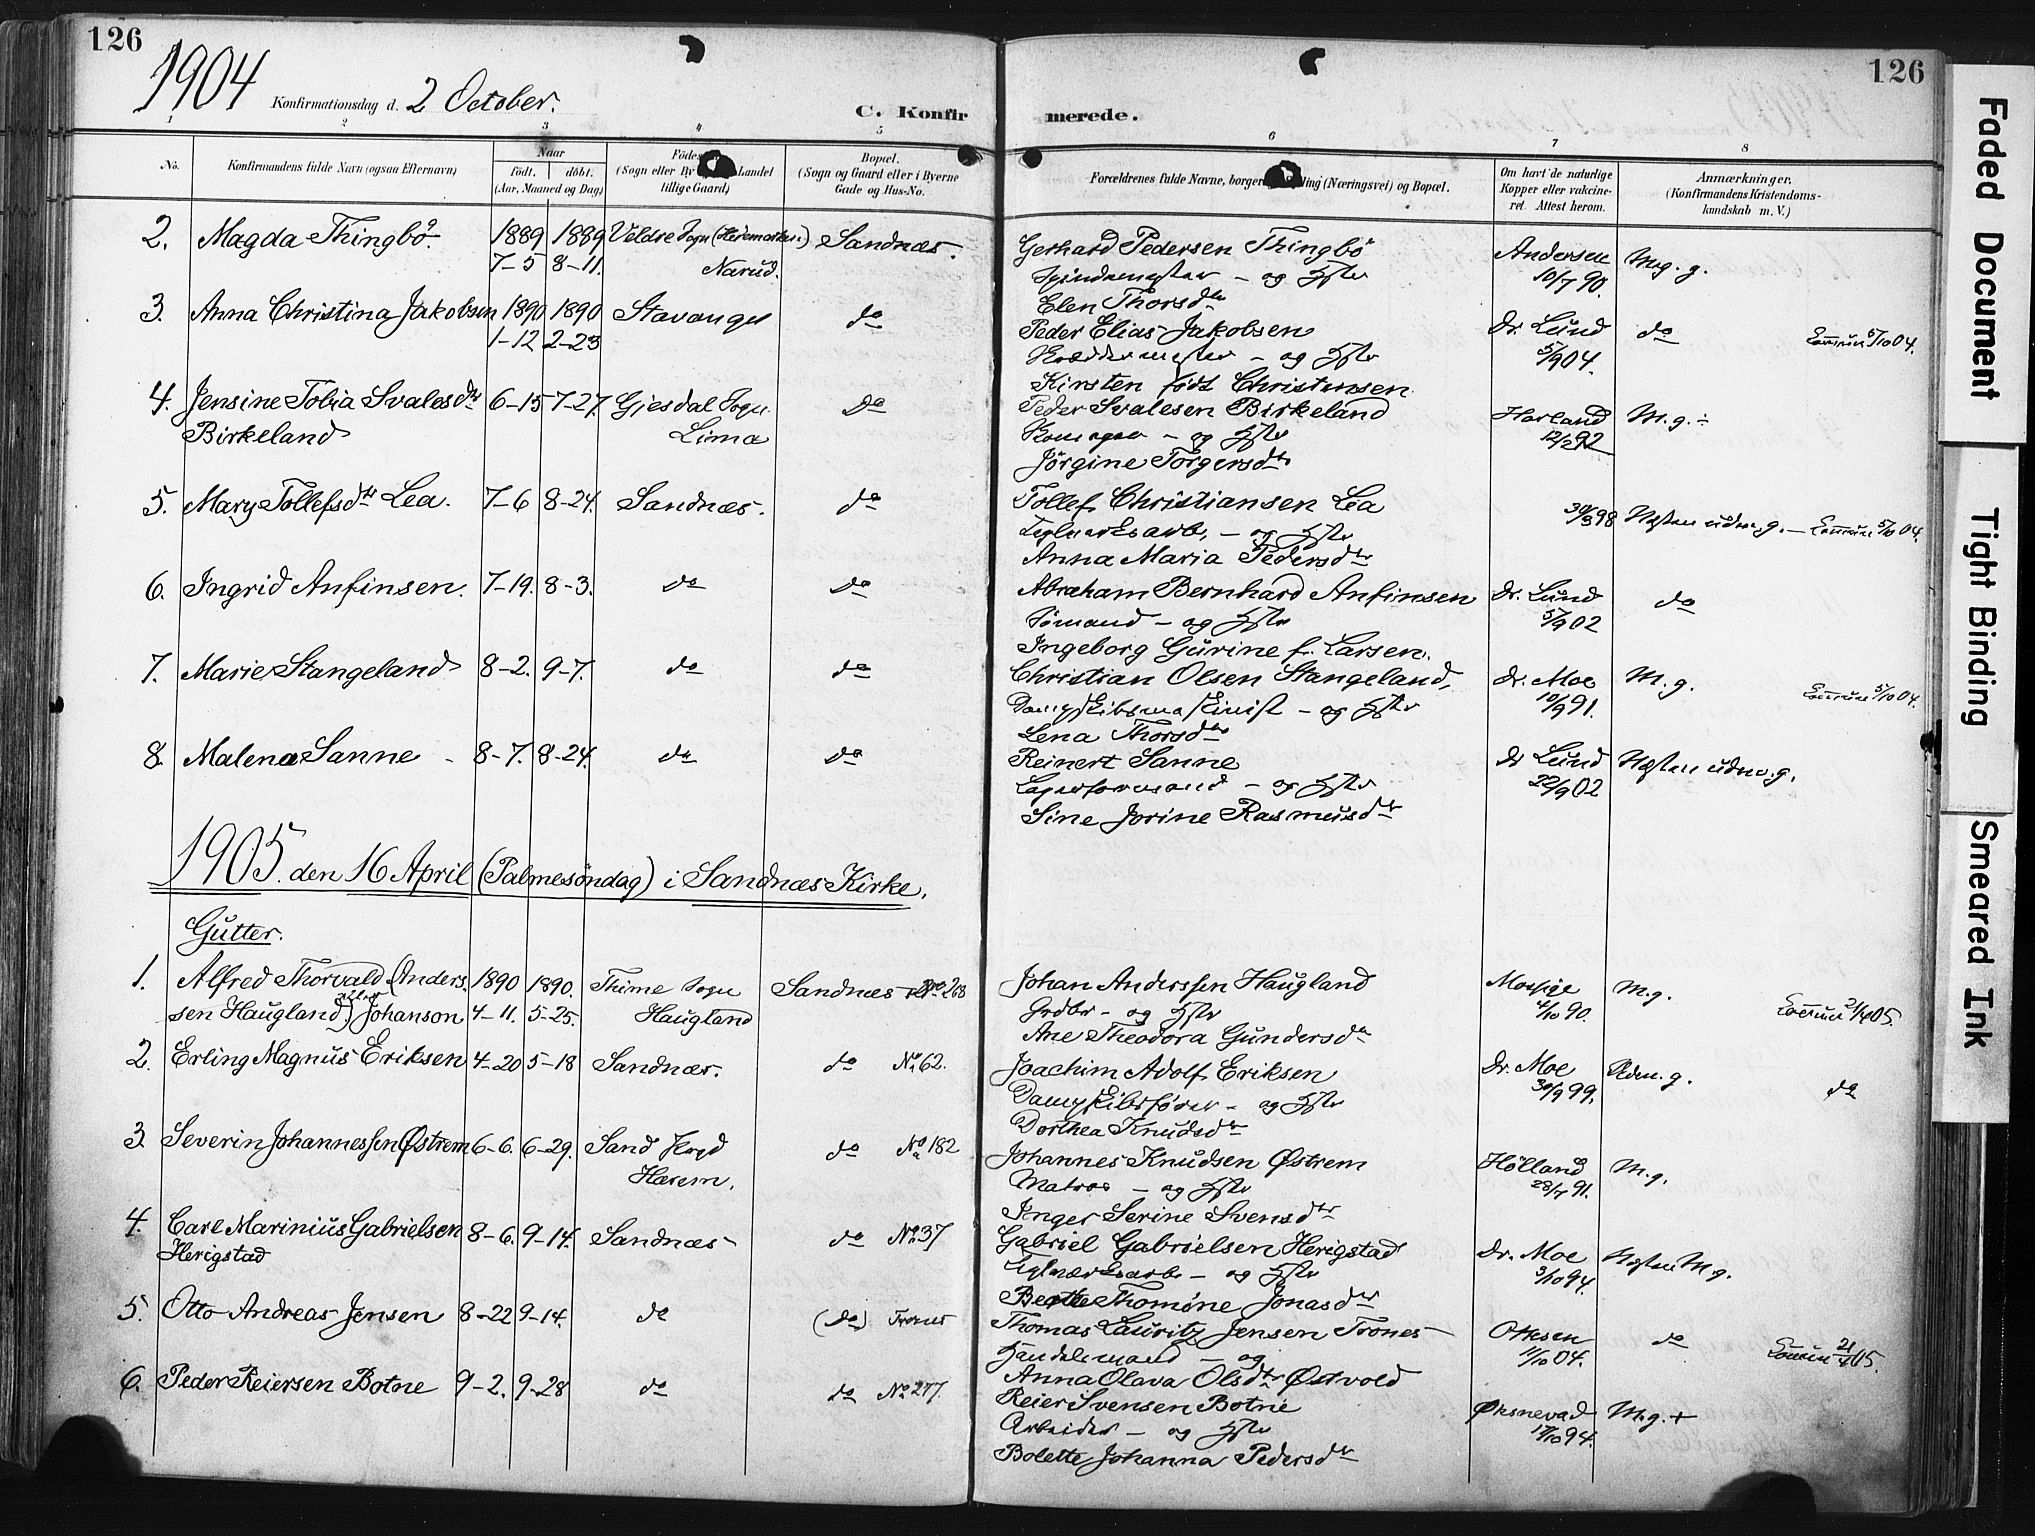 126
126
1904 Konfirmationsdag d. 2 October.
C. Konfirmerede.
1 2 3 4 5 6 7 8
No. Konfirmandens fulde Navn (ogsaa Efternavn) Naar født. døbt. (Aar, Maaned og Dag) (Sogn eller By Landet tillige Gaard) Bopæl. (Sogn og Gaard eller i Byerne Gade og Hus-No. Forældrenes fulde Navne, (Næringsvei) og Bopæl. Om havt de naturlige Kopper eller vakcineret. Attest herom. Anmærkninger. (Konfirmandens Kristendomskundskab m. V.)
2. Magda Thingbö. 1889 1889 Veldre Sogn Sandnæs. Gerhard Pedersen Thingbö Andersen M.g.
7-5 8-11. Narud. Spindemester - og Hstr 10/7 90.
Elen Thorsdtr
3. Anna Christina Jakobsen 1890 1890 Stavanger do Peder Elias Jakobsen Dr. Lund do 5/10 04.
1-12 2-23 Skræddermester - og Hstr 5/9 04.
Kirsten født Christensen
4. Jensine Tobia Svalesdtr 6-15 7-27. Gjesdal Sogn do Peder Svalesen Birkeland Horland M.g.÷
Birkeland Lima - og Hstr 12/2 92
Jörgine Torgersdtr
5. Mary Tollefsdtr Lea. 7-6 8-24. Sandnæs. do Tollef Christiansen Lea 30/3 98 Næsten udm.g. - 5/10 04.
Teglverksarb. - og Hstr
Anna Maria Pedersdtr
6. Ingrid Anfinsen. 7-19. 8-3. do do Abraham Bernhard Anfinsen Dr. Lund do
Sömand - og Hstr 5/9 02
Ingeborg Gurine f. Larsen.
7. Marie Stangeland 8-2. 9-7. do do Christian Olsen Stangeland, Dr. Moe M.g. 5/10 04.
Dampskibsmaskinist - og Hstr 10/9 91.
Lena Thorsdtr
8. Malena Sanne 8-7. 8-24. do do Reinert Sanne Dr Lund Næsten udm.g.
Lagerformand - og Hstr 22/9 02
Sine Jorine Rasmusdtr
1905. den 16 April (Palmesöndag) i Sandnæs Kirke.
Gutter.
1. Alfred Thorvald (Anders- 1890 1890. Thime Sogn Sandnæs No 268 Johan Anderssen Haugland M.g. 21/4 05.
sen Haugland) eller Johanson 4-11. 5-25. Haugland Grdbr - og Hstr 4/10 90.
Ane Theodora Gundersdtr
2. Erling Magnus Eriksen 4-20 5-18 Sandnæs. do No 62. Joachim Adolf Eriksen Dr. Moe Udm.g. do
Dampskibsförer - og Hstr 30/9 99.
Dorthea Knudsdtr
3. Severin Johannessen Østrem 6-6. 6-29. Sand do No 182 Johannes Knudsen Østrem Hölland M.g.
Harem. Matros - og Hstr 28/7 91.
Inger Serine Svensdtr
4. Carl Marinius Gabrielsen 8-6. 9-14. Sandnæs do No 37 Gabriel Gabrielsen Herigstad Dr. Moe Næsten M.g.
Herigstad Teglværksarb - og Hstr 3/10 94.
Berthe Thomine Jonasdtr
5. Otto Andreas Jensen 8-22 9-14. do (do) Trones Thomas Lauritz Jensen Trones do 21/4 05.
Handelsmand - og 11/10 04.
Anna Olava Olsdtr Østvold
6. Peder Reiersen Botne 9-2. 9-28 do do No 277. Reier Svensen Botne Øksnevad M.g.+
Arbeider - og Hstr 17/10 94.
Bolette Johanna Pedersdtr
Faded Document
Tight Binding
Smeared Ink